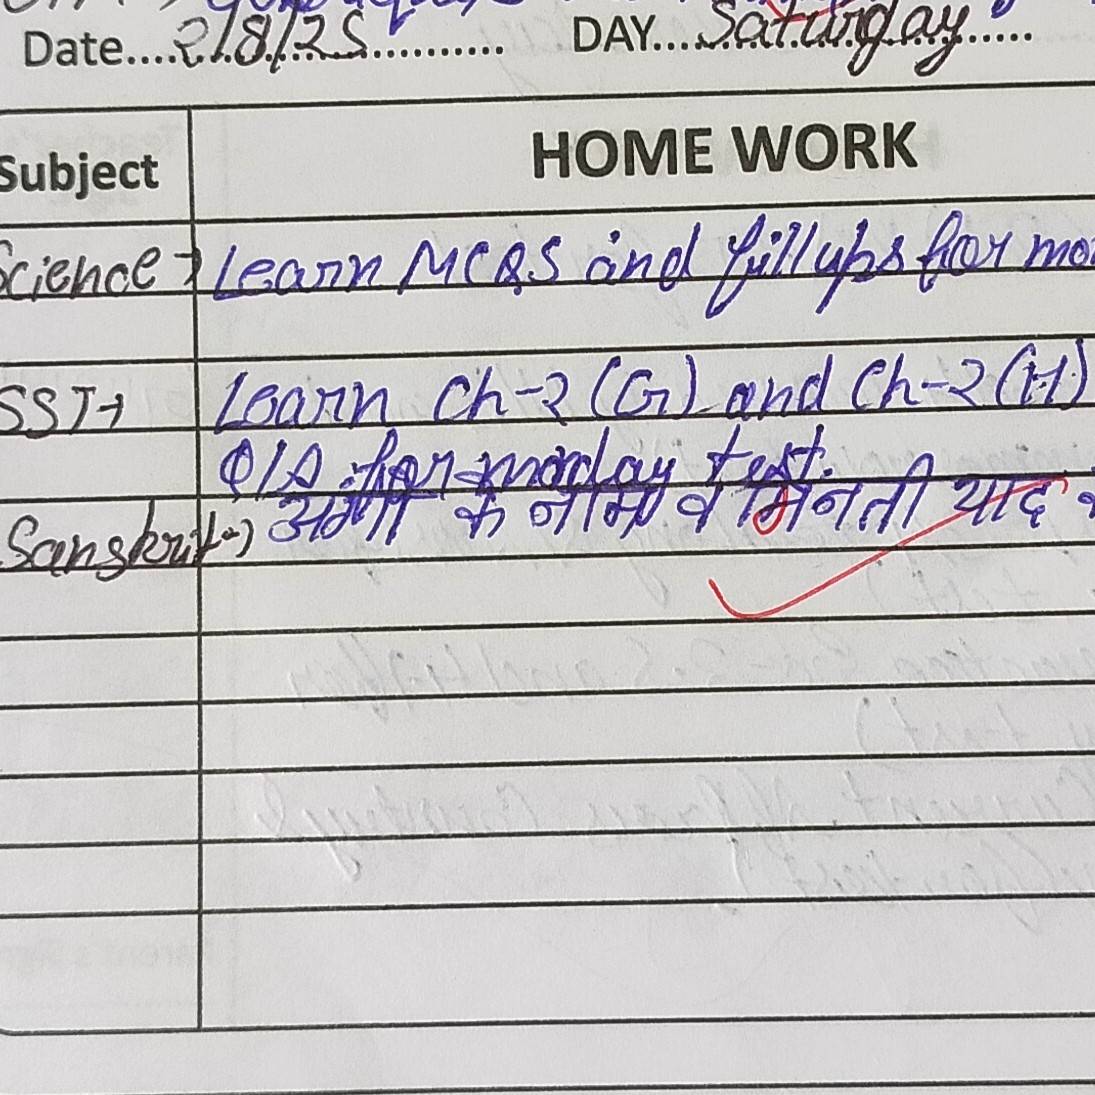 Date....2/8/25........... DAY....Saturday......
Subject HOME WORK
Science → Learn MCQS and fillups for mo
SST → Learn Ch-2 (G) and Ch-2 (H)
Q/A for monday test.
Sanskrit → अंगों के नाम व गिनती याद